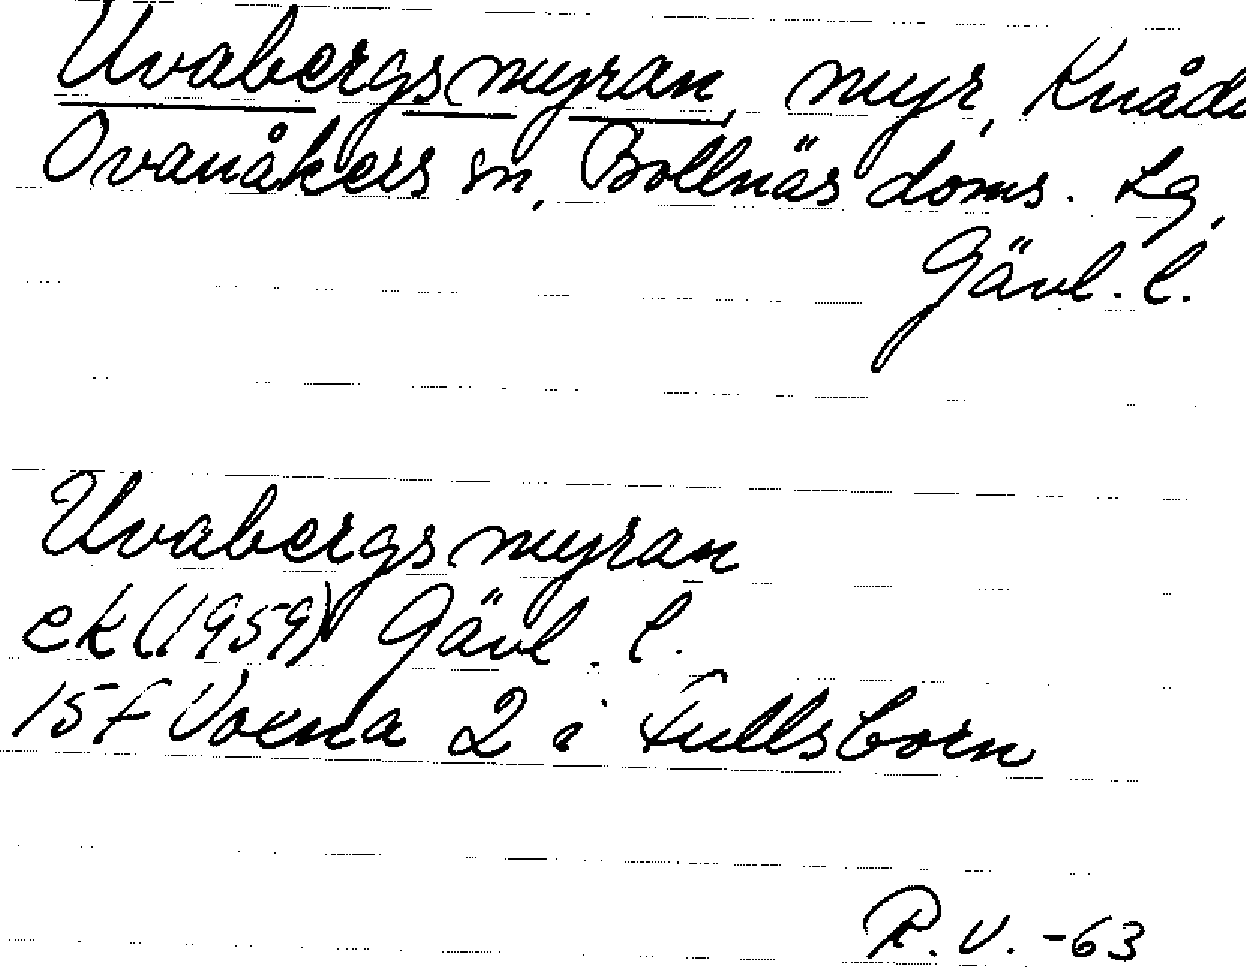 Uvabergsmyran, myr, Knåda
Ovanåkers sn, Bollnäs doms. Lg,
Gävl. l.
Uvabergsmyran
ek (1959) Gävl. l.
15f Voxna 2 i Fullsborn
R.V. -63